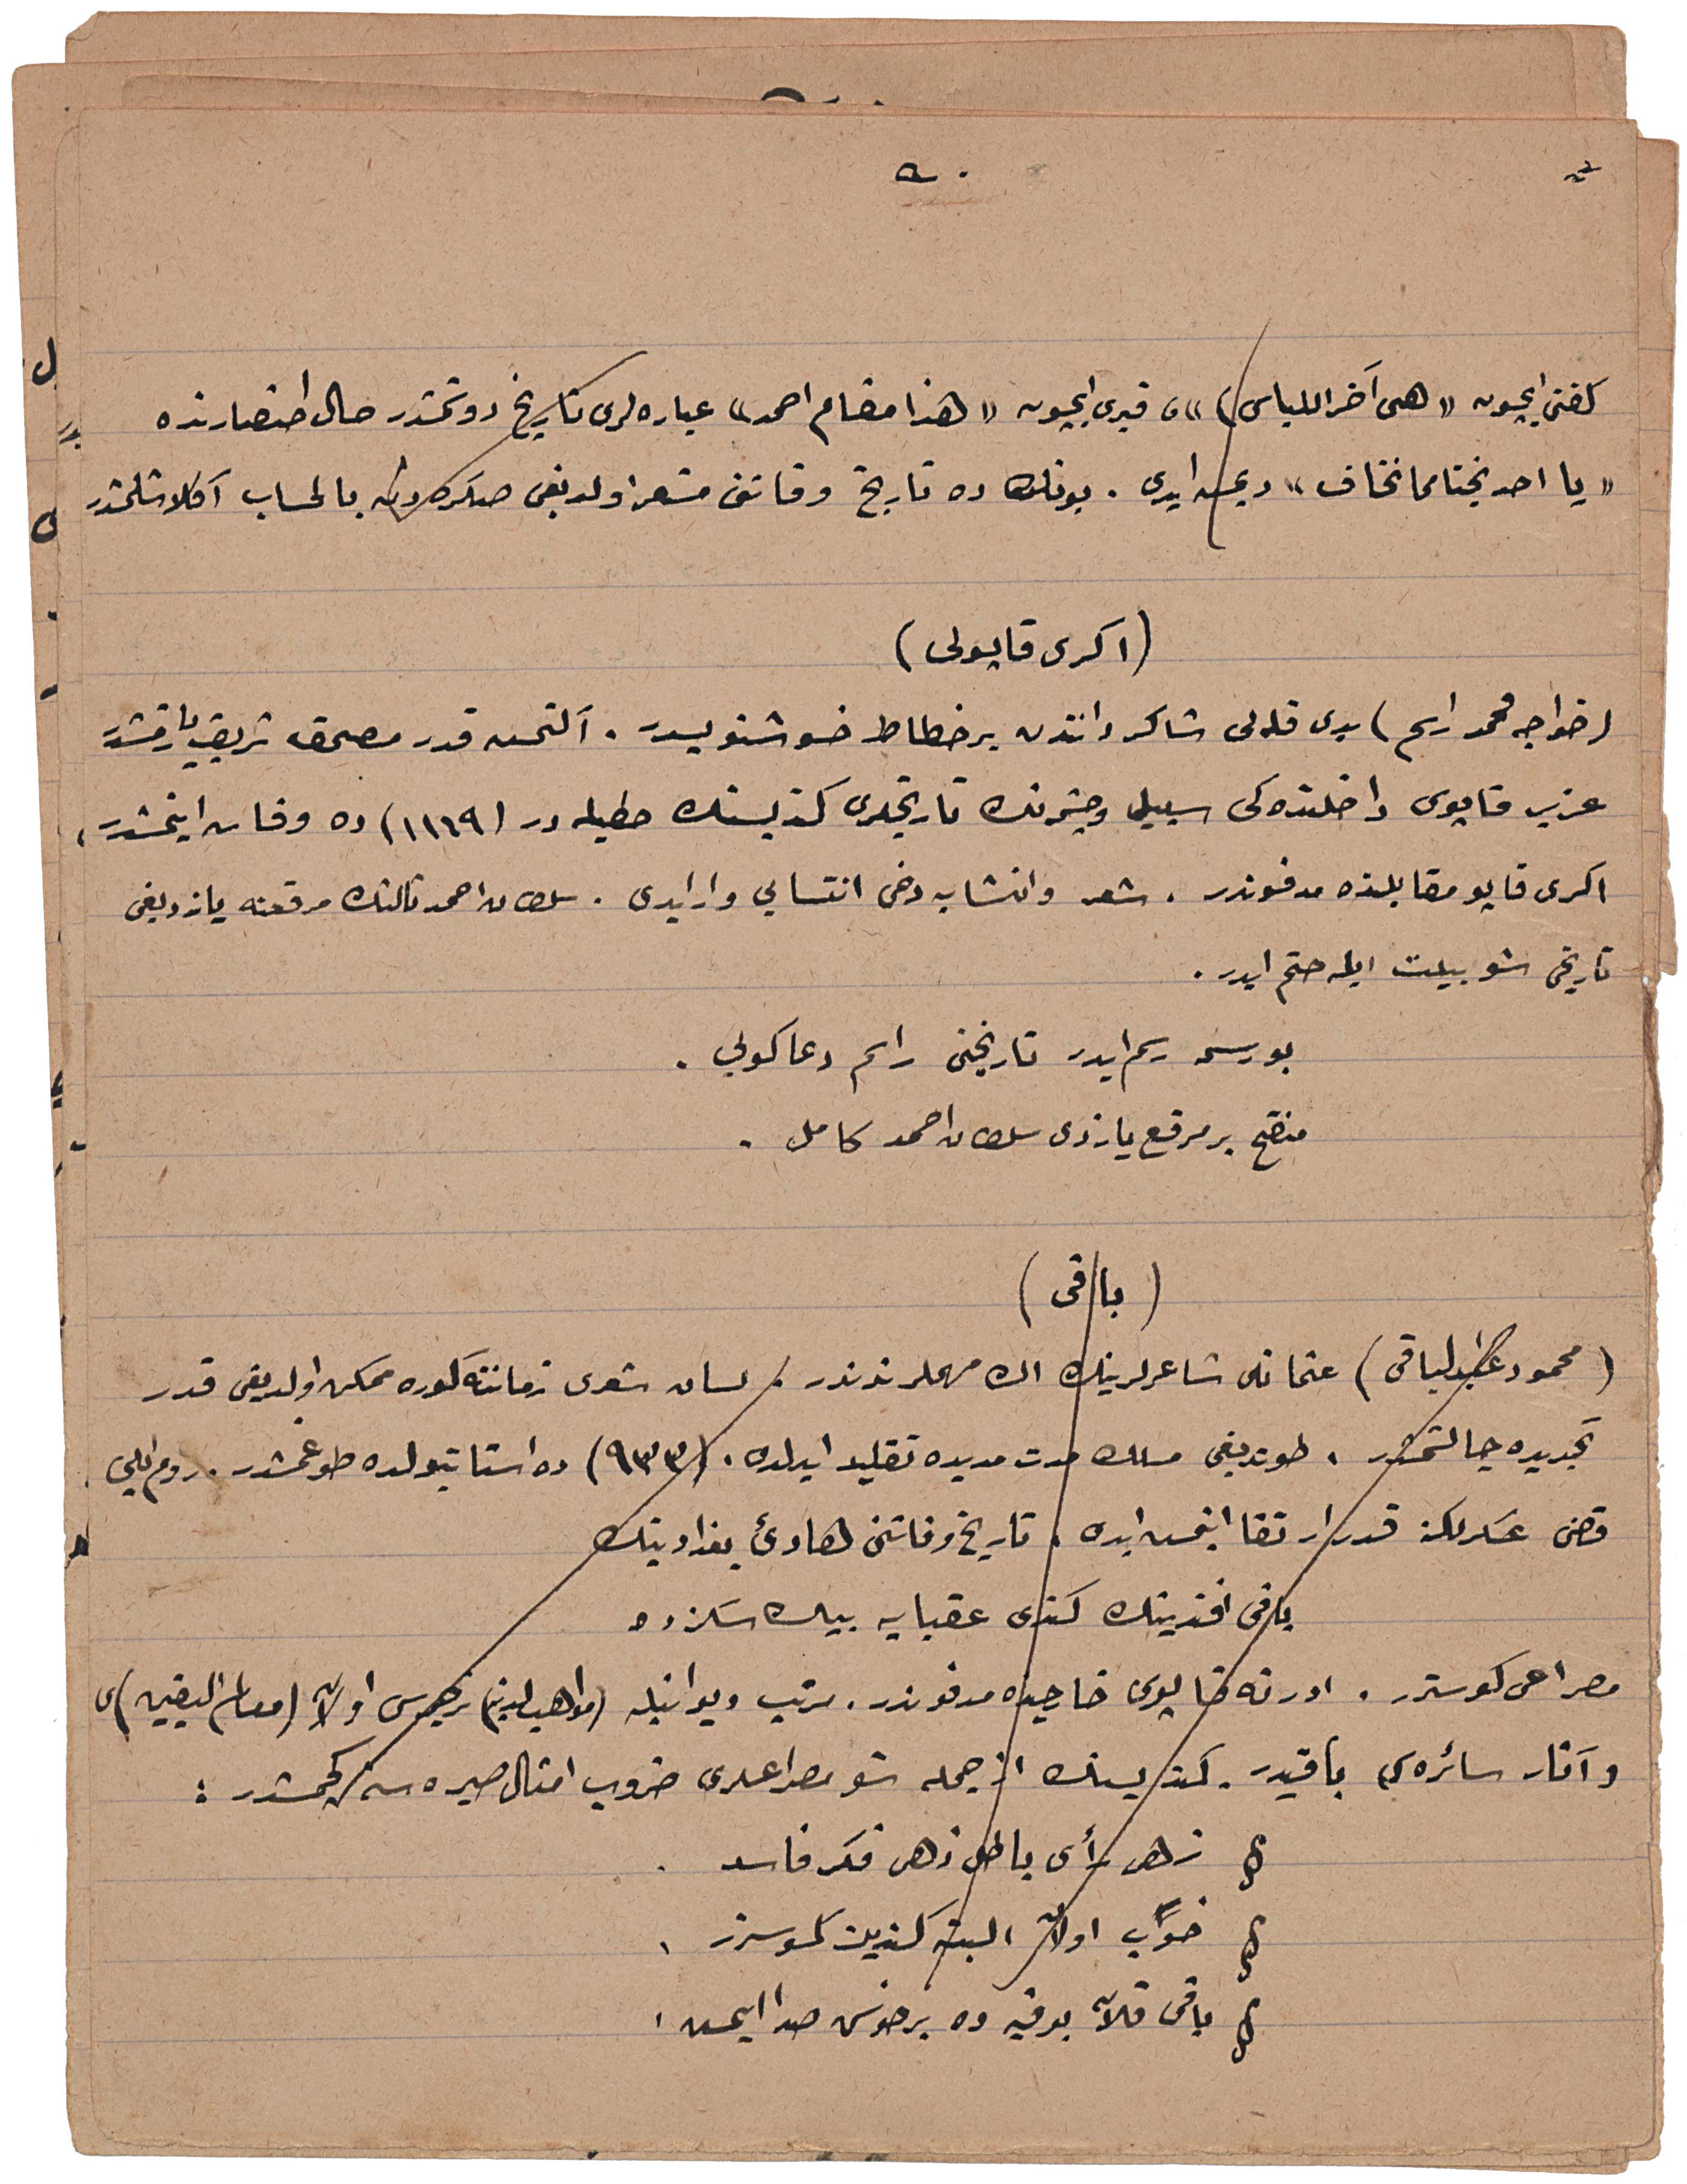 کفنی ایچون «هی آخر اللباس»، قبری ایچون «هذا مقام احمد» عباره لری تاریخ دوشمشدر حال احتضارنده
«یا احد نجنا مما نخاف» دیمش ایدی . بونك ده تاریخ وفاتی مشعر اولدیغی صکره دن بالحساب آکلاشلمشدر
(اکری قاپولی)
(خواجه محمد راسم) یدی قله لی شاکرداندن بر خطاط خوشنویسدر . آلتمش قدر مصحف شریف یازمشدر
عزب قاپوسی داخلنده کی سبیل وچشمه نك تاریخلری کندیسنك خطیله در (١١٦٩) ده وفات ایتمشدر ،
اکری قاپو مقابلنده مدفوندر . شعر وانشایه دخی انتسابی وار ایدی . سلطان احمد ثالثك مرقعنه یازدیغی
تاریخی شو بیت ایله ختم ایدر .
بو رسمه رسم ایدر تاریخنی راسم دعا کویی .
منقح بر مرقع یازدی سلطان احمد کامل .
(باقی)
(محمود عبدالباقی) عثمانلی شاعرلرینك الك مهملرندندر . لسان شعری زماننه کوره ممکن اولدیغی قدر
تجدیده چالشمشدر . طوتدیغی مسلك مدت مدیده تقلید ایدلدی . (٩٣٣) ده استانبولده طوغمشدر . روم ایلی
قاضی عسکرلکنه قدر ارتقا ایتمش ایدی . تاریخ وفاتنی هادئ بغدادینك
باقی افندینك کتدی عقبایه بیك سکزده
مصراعی کوسترر . ادرنه قاپوسی خارجنده مدفوندر . مرتب دیوانیله (مواهب لدنیه) ترجمه سی اولان (معالم الیقین) ی
و آثار سائره سی باقیدر . کندیسنك از جمله شو مصراعلری ضروب امثال صیره سنه کچمشدر :
زهی رأی باطل زهی فکر فاسد .
خوب اولان البته کندین کوسترر .
باقی قلان بو قبه ده بر خوش صدا ایمش .